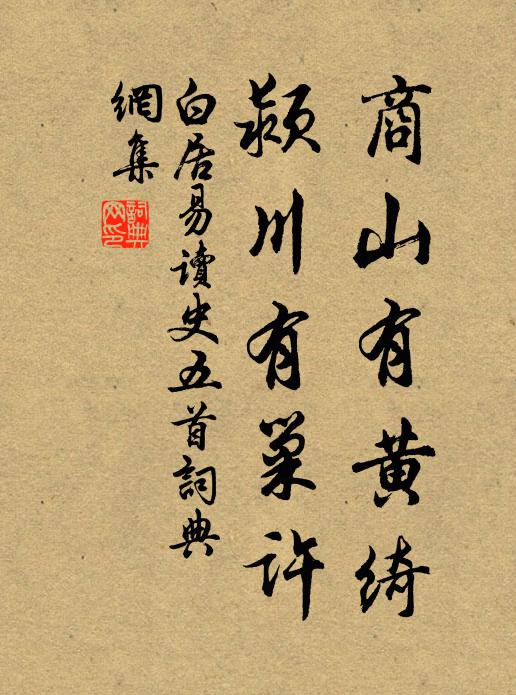 商山有黄綺
潁川有巢許
白居易讀史五首詞典
網集
詞典
网印